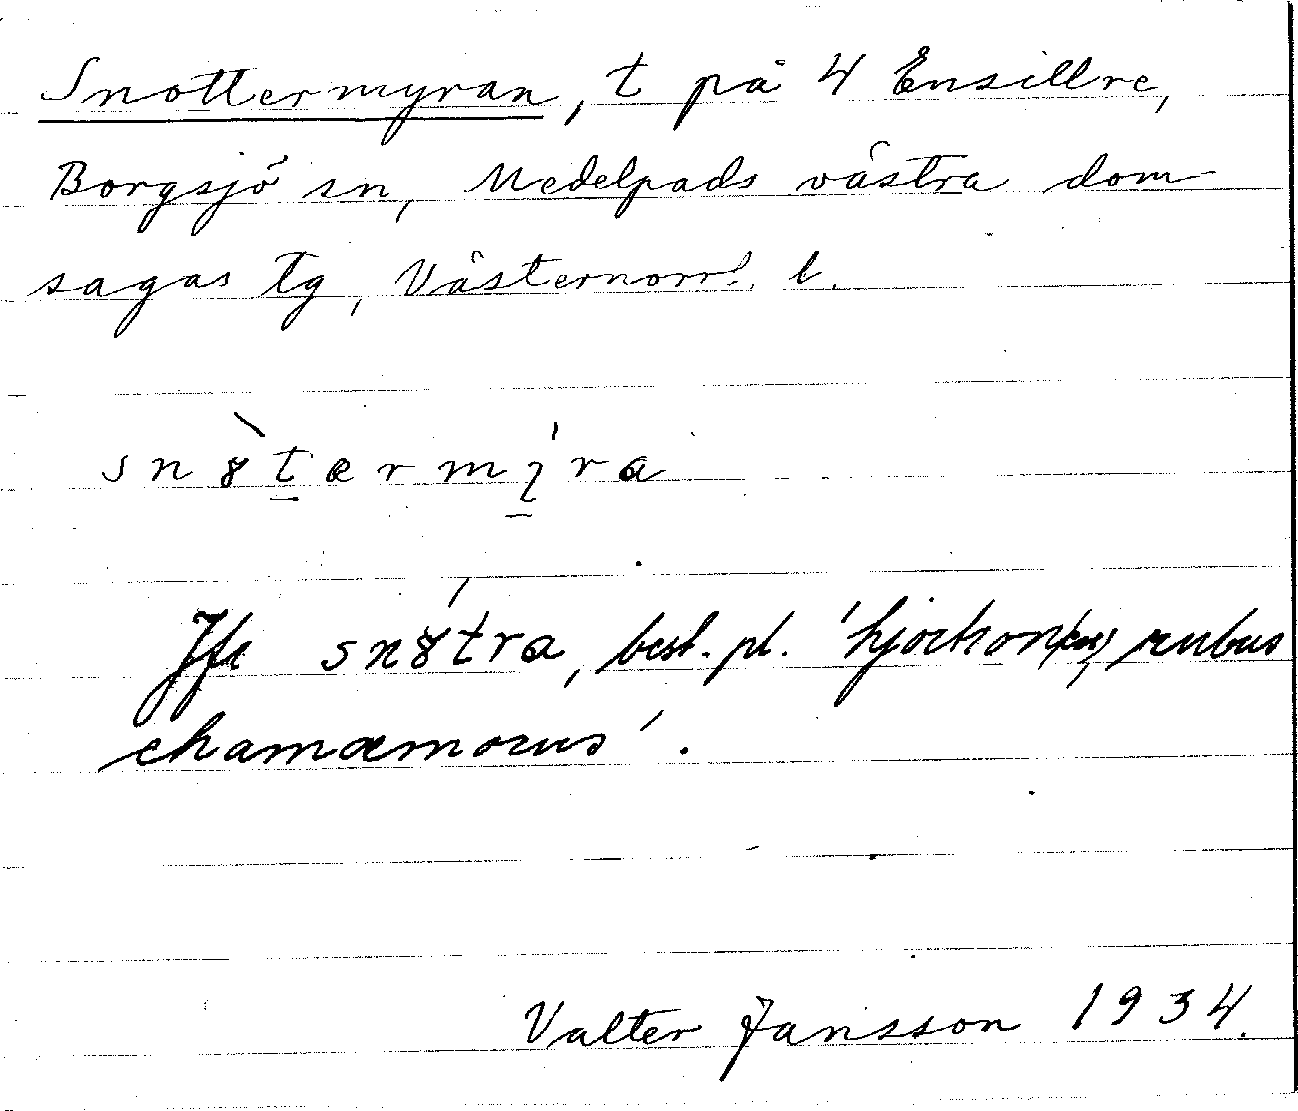 Snottermyran, t på 4 Ensillre,
Borgsjö sn, Medelpads västra dom-
sagas tg, Västernorrl. l.
snȣ̀tærmı̨́ra
Jfr snȣ́tra, best. pl. 'hjortron(en), rubus
chamæmorus'.
Valter Jansson 1934.